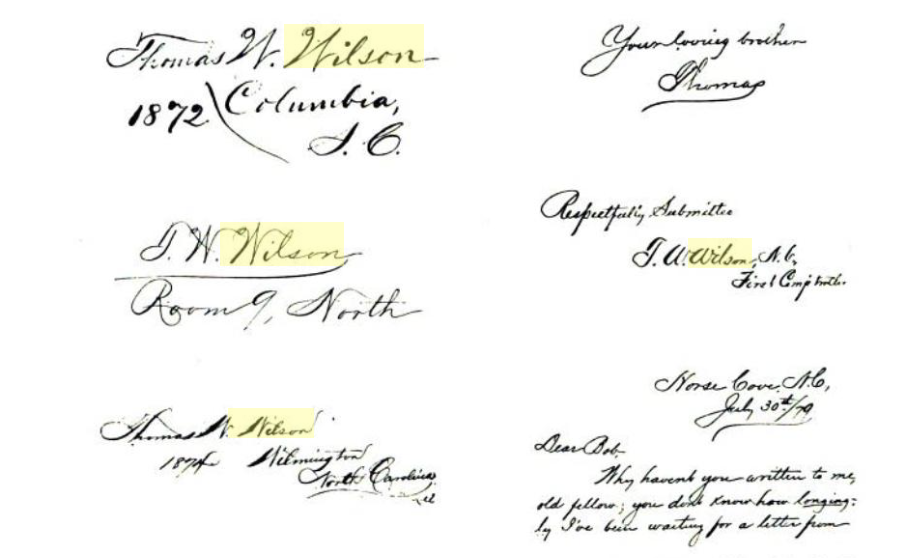 Thomas W. Wilson
1872 Columbia,
S. C.
T. W. Wilson
Room 9, North
Thomas W. Wilson
1874 Wilmington
North Carolina
Your loving brother
Thomas
Respectfully Submitted
T. W. Wilson, N. C,
First Comptroller
Horse Cove, N.C,
July 30th/79
Dear Bob-
Why havent you written to me,
old fellow; you dont know how longing-
ly I've been waiting for a letter from